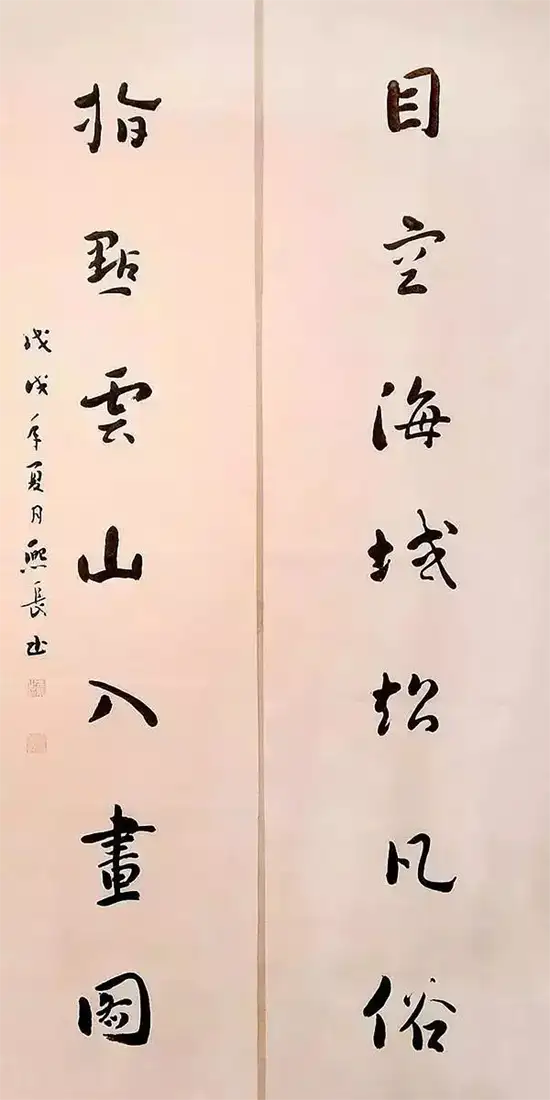 目空海域超凡俗
指點雲山入畫圖
戊戌年夏月熙長书